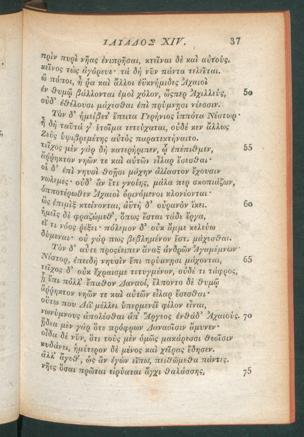 ΙΛΙΑΔΟΣ XIV. 37
πρὶν πυρὶ νῆας ἐνιπρῆσαι, κτεῖναι δὲ καὶ αὐτούς.
κεῖνος τὼς ἀγόρευε· τὰ δὴ νῦν πάντα τελεῖται.
ὦ πόποι, ἦ ῥα καὶ ἄλλοι ἐϋκνήμιδες Ἀχαιοὶ
ἐν θυμῷ βάλλονται ἐμοὶ χόλον, ὥσπερ Ἀχιλλεύς, 50
οὐδ' ἐθέλουσι μάχεσθαι ἐπὶ πρύμνῃσι νέεσσιν.
Τὸν δ' ἠμείβετ' ἔπειτα Γερήνιος ἱππότα Νέστωρ·
ἦ δὴ ταῦτά γ' ἑτοῖμα τετεύχαται, οὐδέ κεν ἄλλως
Ζεὺς ὑψιβρεμέτης αὐτὸς παρατεκτήναιτο.
τεῖχος μὲν γὰρ δὴ κατερήριπεν, ᾧ ἐπέπιθμεν, 55
ἄῤῥηκτον νηῶν τε καὶ αὐτῶν εἶλαρ ἔσεσθαι·
οἱ δ' ἐπὶ νηυσὶ θοῇσι μάχην ἀλίαστον ἔχουσιν
νωλεμές· οὐδ' ἂν ἔτι γνοίης, μάλα περ σκοπιάζων,
ὁπποτέρωθεν Ἀχαιοὶ ὀρινόμενοι κλονέονται·
ὡς ἐπιμὶξ κτείνονται, ἀϋτὴ δ' οὐρανὸν ἵκει. 60
ἡμεῖς δὲ φραζώμεθ', ὅπως ἔσται τάδε ἔργα,
εἴ τι νόος ῥέξει· πόλεμον δ' οὐκ ἄμμε κελεύω
δύμεναι· οὐ γάρ πως βεβλημένον ἐστὶ μάχεσθαι.
Τὸν δ' αὖτε προσέειπεν ἄναξ ἀνδρῶν Ἀγαμέμνων·
Νέστορ, ἐπειδὴ νηυσὶν ἔπι πρύμνῃσι μάχονται, 65
τεῖχος δ' οὐκ ἔχραισμε τετυγμένον, οὐδέ τι τάφρος,
ᾗ ἔπι πόλλ' ἔπαθον Δαναοί, ἔλποντο δὲ θυμῷ
ἄῤῥηκτον νηῶν τε καὶ αὐτῶν εἶλαρ ἔσεσθαι·
οὕτω που Διῒ μέλλει ὑπερμενέϊ φίλον εἶναι,
νωνύμνους ἀπολέσθαι ἀπ' Ἄργεος ἐνθάδ' Ἀχαιούς. 70
ᾔδεα μὲν γὰρ ὅτε πρόφρων Δαναοῖσιν ἄμυνεν·
οἶδα δὲ νῦν, ὅτι τοὺς μὲν ὁμῶς μακάρεσσι θεοῖσιν
κυδάνει, ἡμέτερον δὲ μένος καὶ χεῖρας ἔδησεν.
ἀλλ' ἄγεθ', ὡς ἂν ἐγὼν εἴπω, πειθώμεθα πάντες.
νῆες ὅσαι πρῶται εἰρύαται ἄγχι θαλάσσης, 75